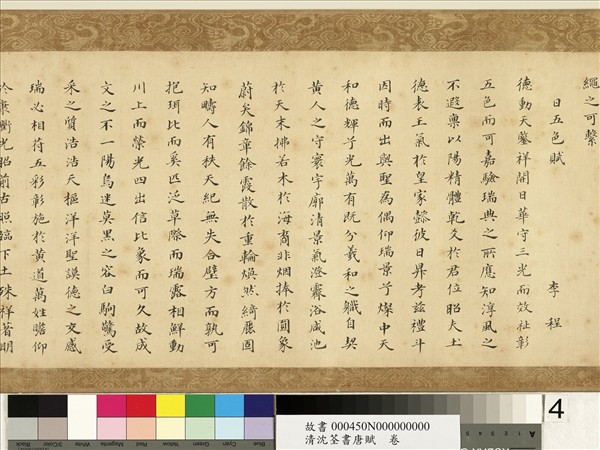 繩之可繫
日五色賦　李程
德動天鑒祥開日華守三光而效祉彰
五色而可嘉驗瑞典之所應知淳風之
不遐稟以陽精體乾爻於君位昭夫土
德表王氣於皇家懿彼日昇考茲禮斗
因時而出與聖為偶仰瑞景兮燦中天
和德輝兮光萬有既分羲和之職自契
黃人之守寰宇廓清景氣澄霽浴咸池
於天末拂若木於海裔非烟捧於圓象
蔚矣錦章餘霞散於重輪煥然綺麗固
知疇人有秩天紀無失合璧方而孰可
抱珥比而奚匹泛草際而瑞露相鮮動
川上而榮光四出信比象而可久故成
文之不一陽烏迷莫黑之容白駒驚受
采之質浩浩天樞洋洋聖謨德之交感
瑞必相符五彩彰施於黃道萬姓瞻仰
於康衢光昭前古照臨下土殊祥著明
Black
3/Color
Magenta
Red
Yellow
Green
Cyan
Blue
故書 000450N000000000
清沈荃書唐賦　卷
A
4